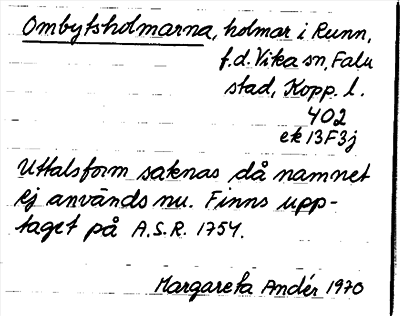 Ombytsholmarna, holmar i Runn,
f.d. Vika sn, Falu
stad, Kopp. l.
402
ek 13F3j
Uttalsform saknas då namnet
ej används nu. Finns upp-
taget på A.S.R. 1754.
Margareta Andér 1970